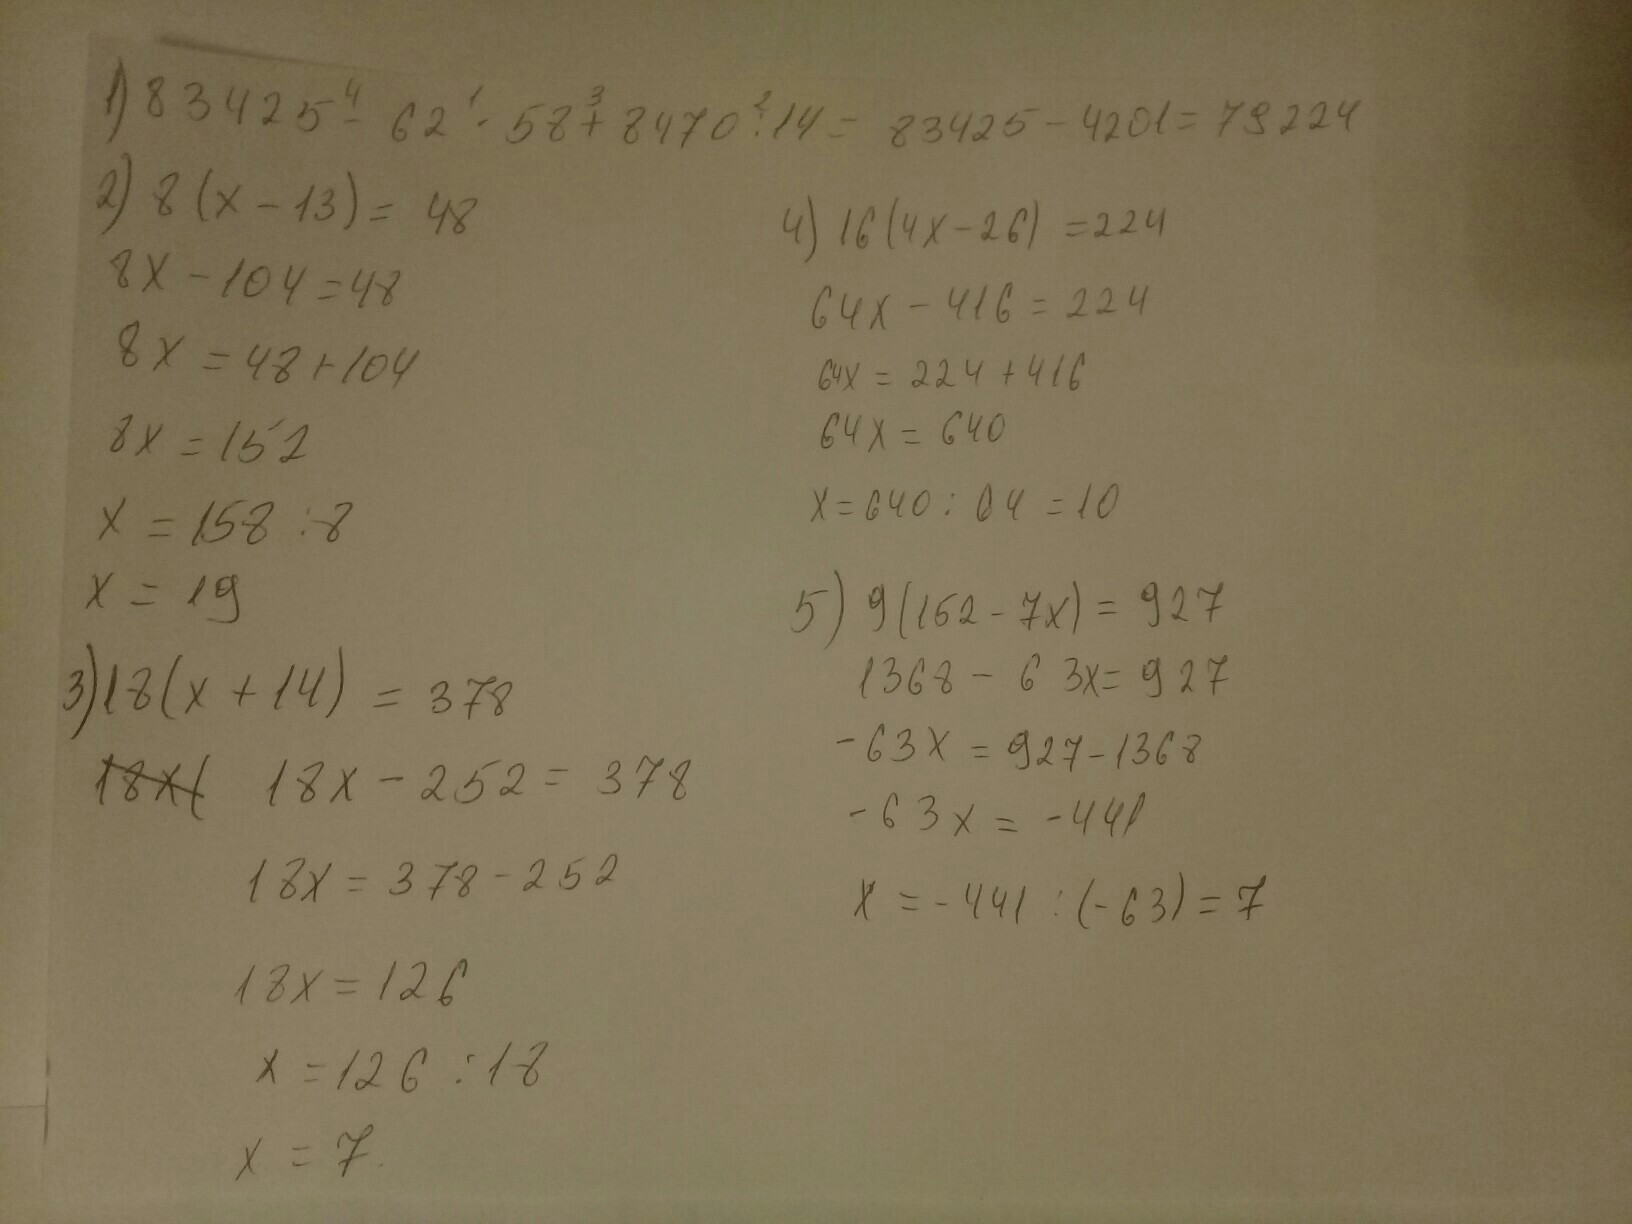 1) 83425 ⁴- 62 ¹· 58 ³+ 8470 ²: 14 = 83425 - 4201 = 79224
2) 8(x - 13) = 48
8x - 104 = 48
8x = 48 + 104
8x = 152
x = 158 : 8
x = 19
3) 18(x + 14) = 378
18x( 18x - 252 = 378
18x = 378 - 252
18x = 126
x = 126 : 18
x = 7.
4) 16(4x - 26) = 224
64x - 416 = 224
64x = 224 + 416
64x = 640
x = 640 : 64 = 10
5) 9(152 - 7x) = 927
1368 - 63x = 927
-63x = 927 - 1368
-63x = -441
x = -441 : (-63) = 7